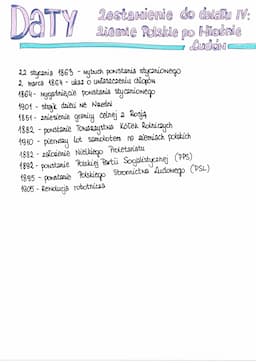 DATY
Zestawienie do działu IV:
Ziemie Polskie po Wiośnie
Ludów
22 stycznia 1863 - wybuch powstania styczniowego
2 marca 1864 - ukaz o uwłaszczeniu chłopów
1864 - wygaśnięcie powstania styczniowego
1901 - strajk dzieci we Wrześni
1851 - zniesienie granicy celnej z Rosją
1882 - powstanie Towarzystwa Kółek Rolniczych
1910 - pierwszy lot samolotem na ziemiach polskich
1882 - założenie Wielkiego Proletariatu
1892 - powstanie Polskiej Partii Socjalistycznej (PPS)
1895 - powstanie Polskiego Stronnictwa Ludowego (PSL)
1905 - Rewolucja robotnicza